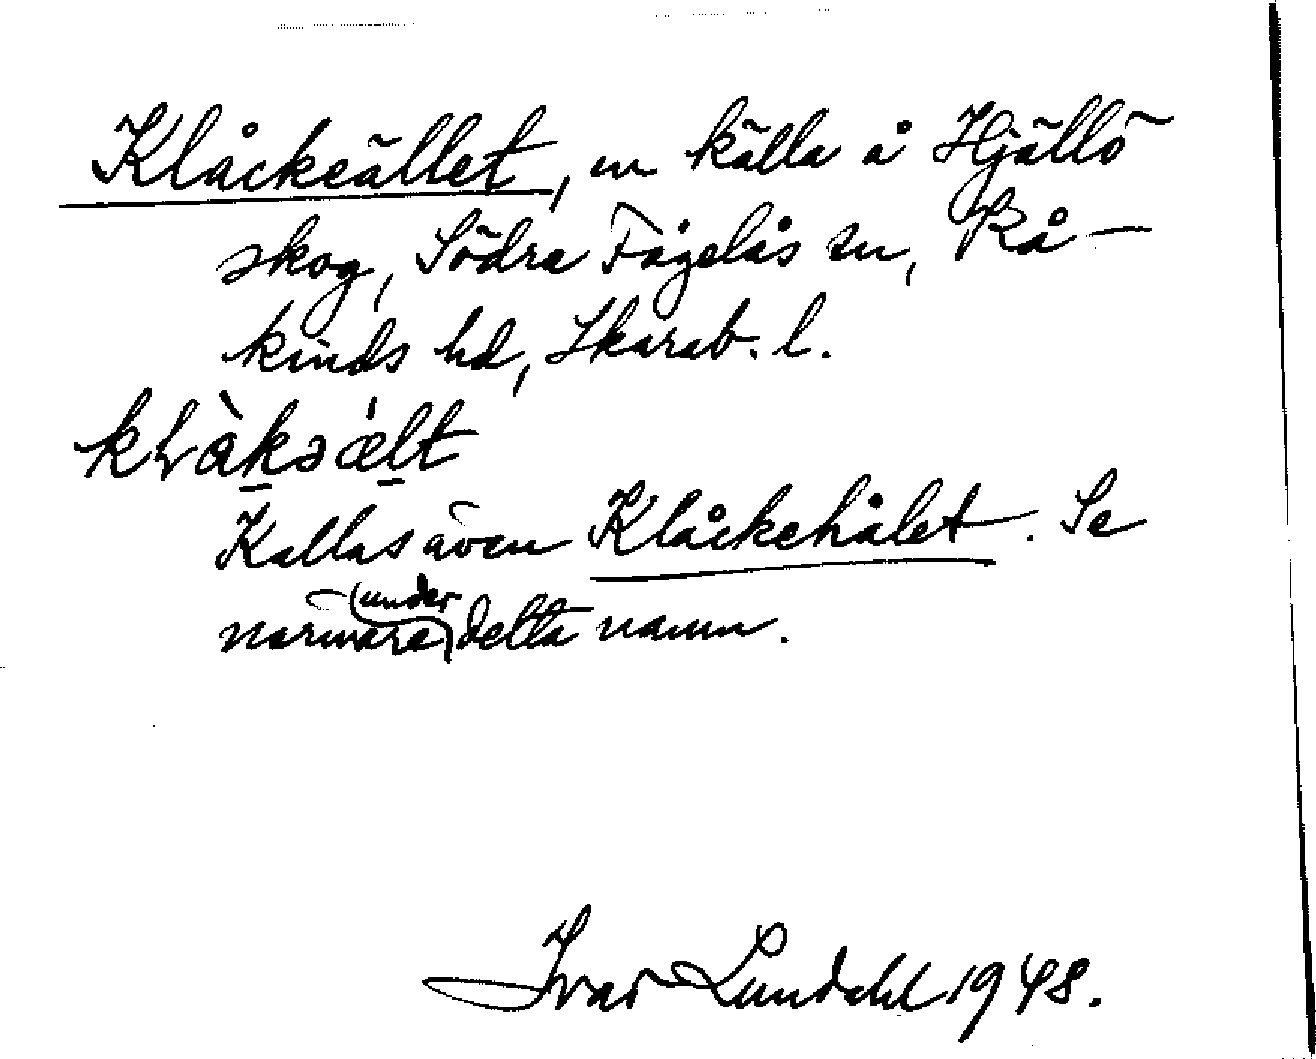 Klåckeället, en källa å Hjällö
skog, Södra Fågelås sn, Kå-
kinds hd, Skarab. l.
Kallas även Klåckehålet. Se
närmare under detta namn.
Ivar Lundahl 1948.